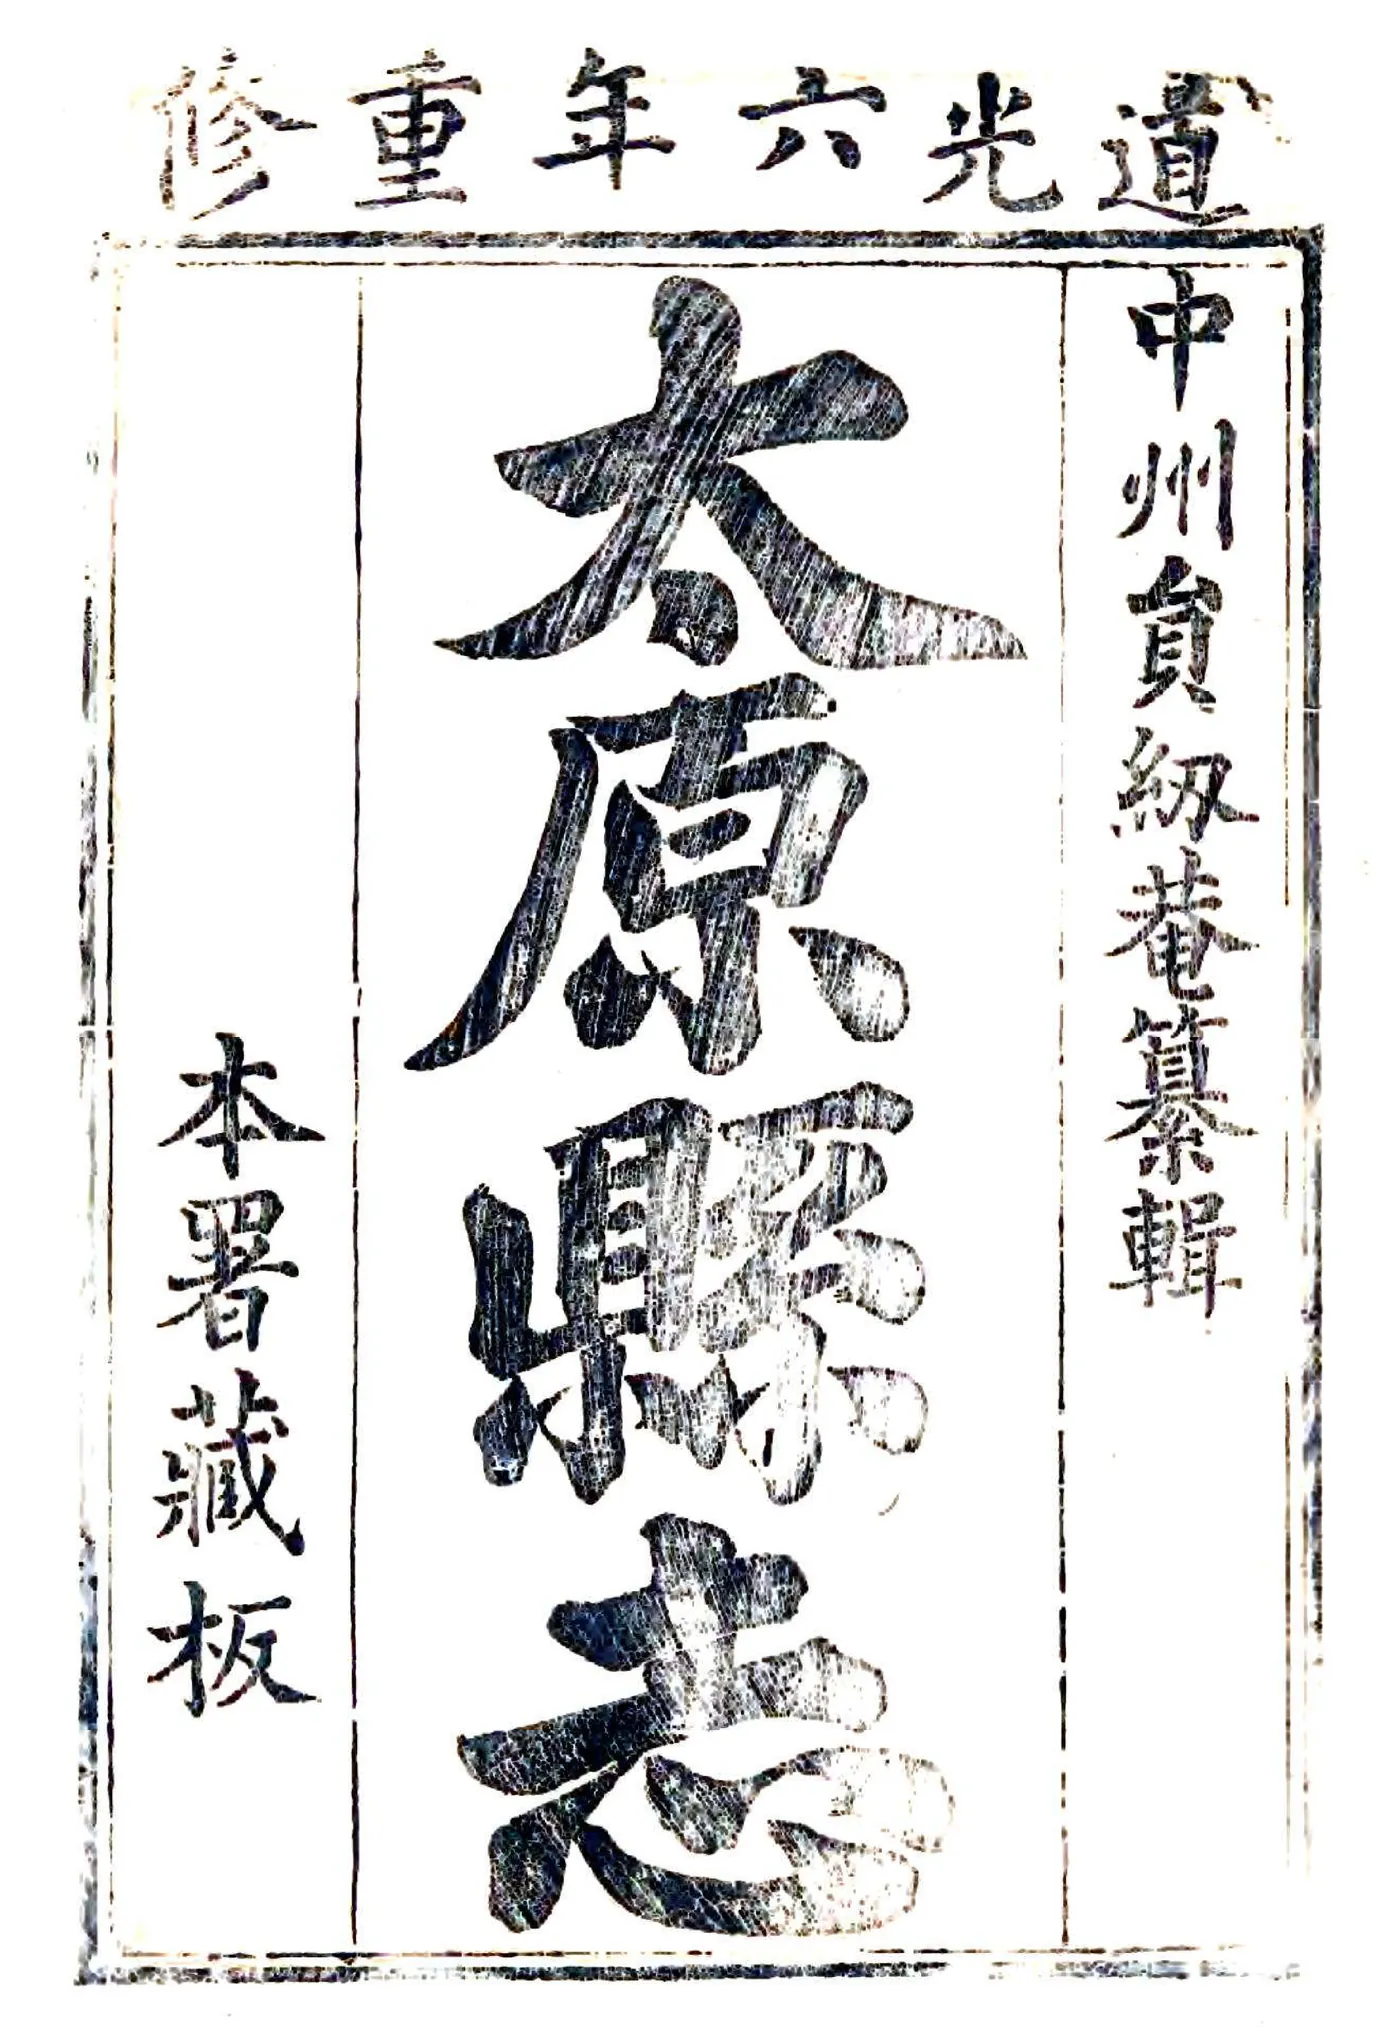 道光六年重修
中州貟紉菴纂輯
太原縣志
本署藏板